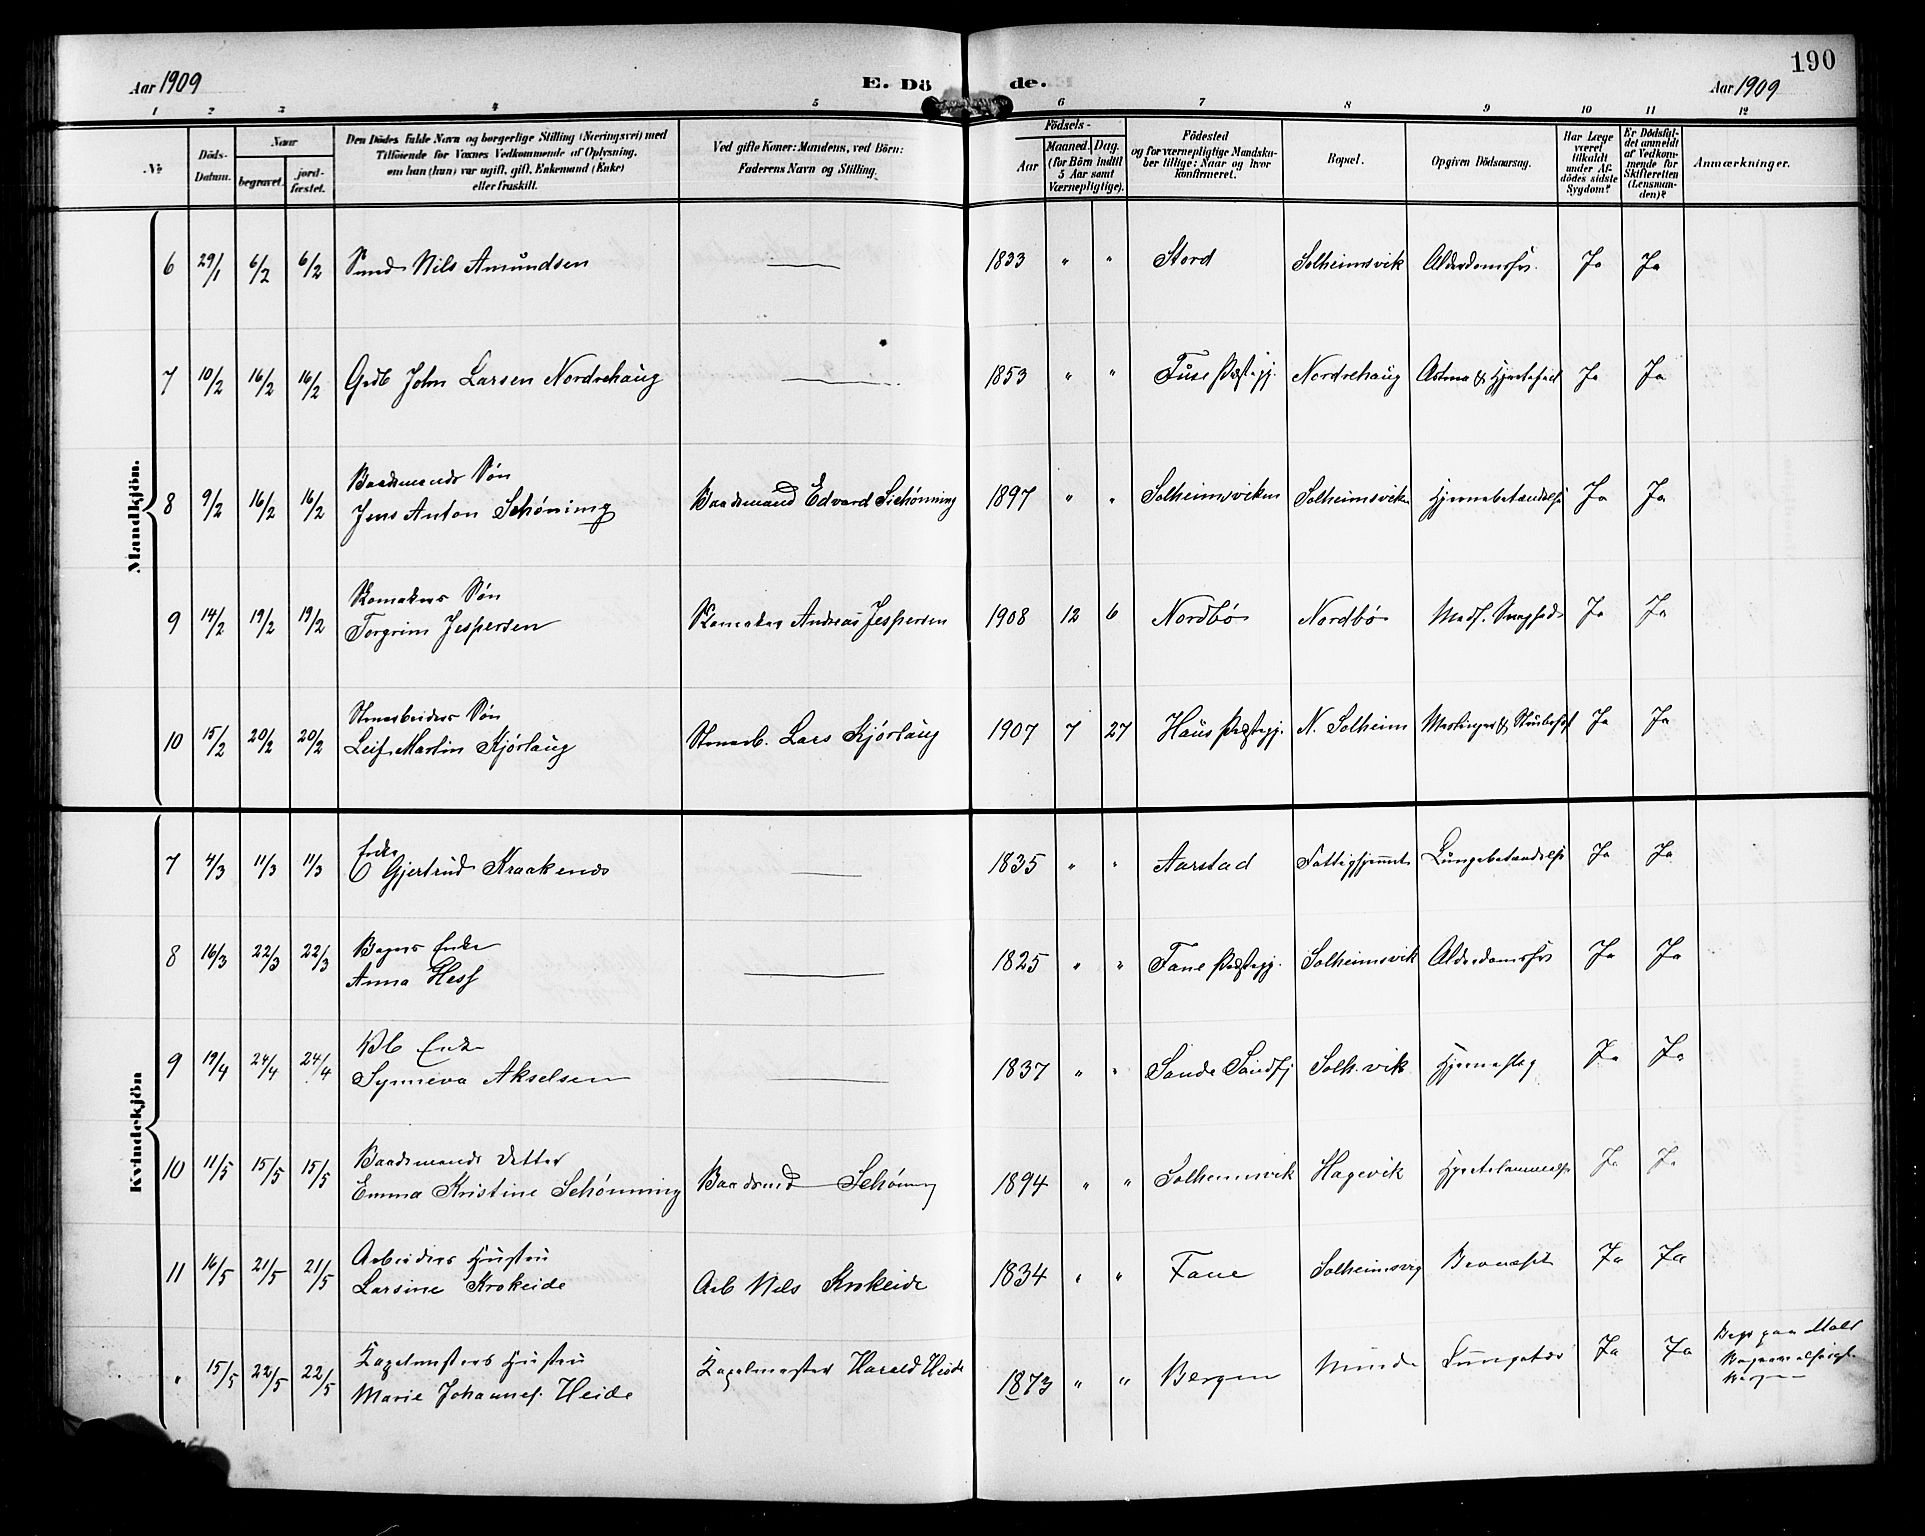 190
Aar 1909
E. Dö
de.
Aar 1909
1 2 3 4 5 6 7 8 9 10 11 12
№
Döds-
Datum.
Naar
begravet.
jord-
fæstet.
Den Dödes fulde Navn og borgerlige Stilling (Næringsvei) med
Tilföiende for Voxnes Vedkommende af Oplysning,
om han (hun) var ugift, gift, Enkemand (Enke)
eller fraskilt.
Ved gifte Koner: Mandens, ved Börn:
Faderens Navn og Stilling.
Födsels-
Aar
Maaned.
Dag.
(for Börn indtil
5 Aar samt
Værnepligtige).
Födested
og for værnepligtige Mandska-
ber tillige: Naar og hvor
konfirmeret.
Bopæl.
Opgiven Dödsaarsag.
Har Læge
været
tilkaldt
under Af-
dödes sidste
Sygdom?
Er Dödsfal-
det anmeldt
af Vedkom-
mende for
Skifteretten
(Lensman-
den)?
Anmærkninger.
Mandkjön.
6 29/1 6/2 6/2 Nils Amundsen 1833 " " Stord Solheimsvik Alderdomssv. Ja Ja
7 10/2 16/2 16/2 Grdb John Larsen Nordrehaug 1853 " " Fuse Præstegj. Nordrehaug Astma & Hjertefeil Ja Ja
Baadsmands Søn
8 9/2 16/2 16/2 Jens Anton Schøning Baadsmand Edvard Schønning 1897 " " Solheimsviken Solheimsviken Hjernebetændelse Ja Ja
Skomakers Søn
9 14/2 19/2 19/2 Torgrim Jespersen Skomaker Andreas Jespersen 1908 12 6 Nordbø Nordbø Medf. Svaghed Ja Ja
Stenarbeiders Søn
10 15/2 20/2 20/2 Leif Martin Kjørlaug Stenarb. Lars Kjørlaug 1907 7 27 Haus Præstegj. N. Solheim Meslinger & Strubehost Ja Ja
Kvindekjön
Enke
7 4/3 11/3 11/3 Gjertrud Kraakenes 1835 " " Aarstad Fattighjemmet Lungebetændelse Ja Ja
Bagers Enke
8 16/3 22/3 22/3 Anna Hess 1825 " " Fane Præstegj. Solheimsvik Alderdomssv Ja Ja
Enke
9 19/4 24/4 24/4 Synneva Akselsen 1837 " " Sande Søndfj Solh.vik Hjerneslag Ja Ja
Baadsmands Datter
10 11/5 15/5 15/5 Emma Kristine Schønning Baadsmd Schønning 1894 " " Solheimsvik Hagevik Hjertelammelse Ja Ja
Arbeiders Hustru
11 16/5 21/5 21/5 Larsine Krokeide Arb Nils Krokeide 1834 " " Fane Solheimsvig Ja Ja
Kapelmesters Hustru
" 15/5 22/5 22/5 Marie Johannes. Heide Kapelmester Harald Heide 1873 " " Bergen Minde Lungetæt Ja Ja
Begr paa
Bergen